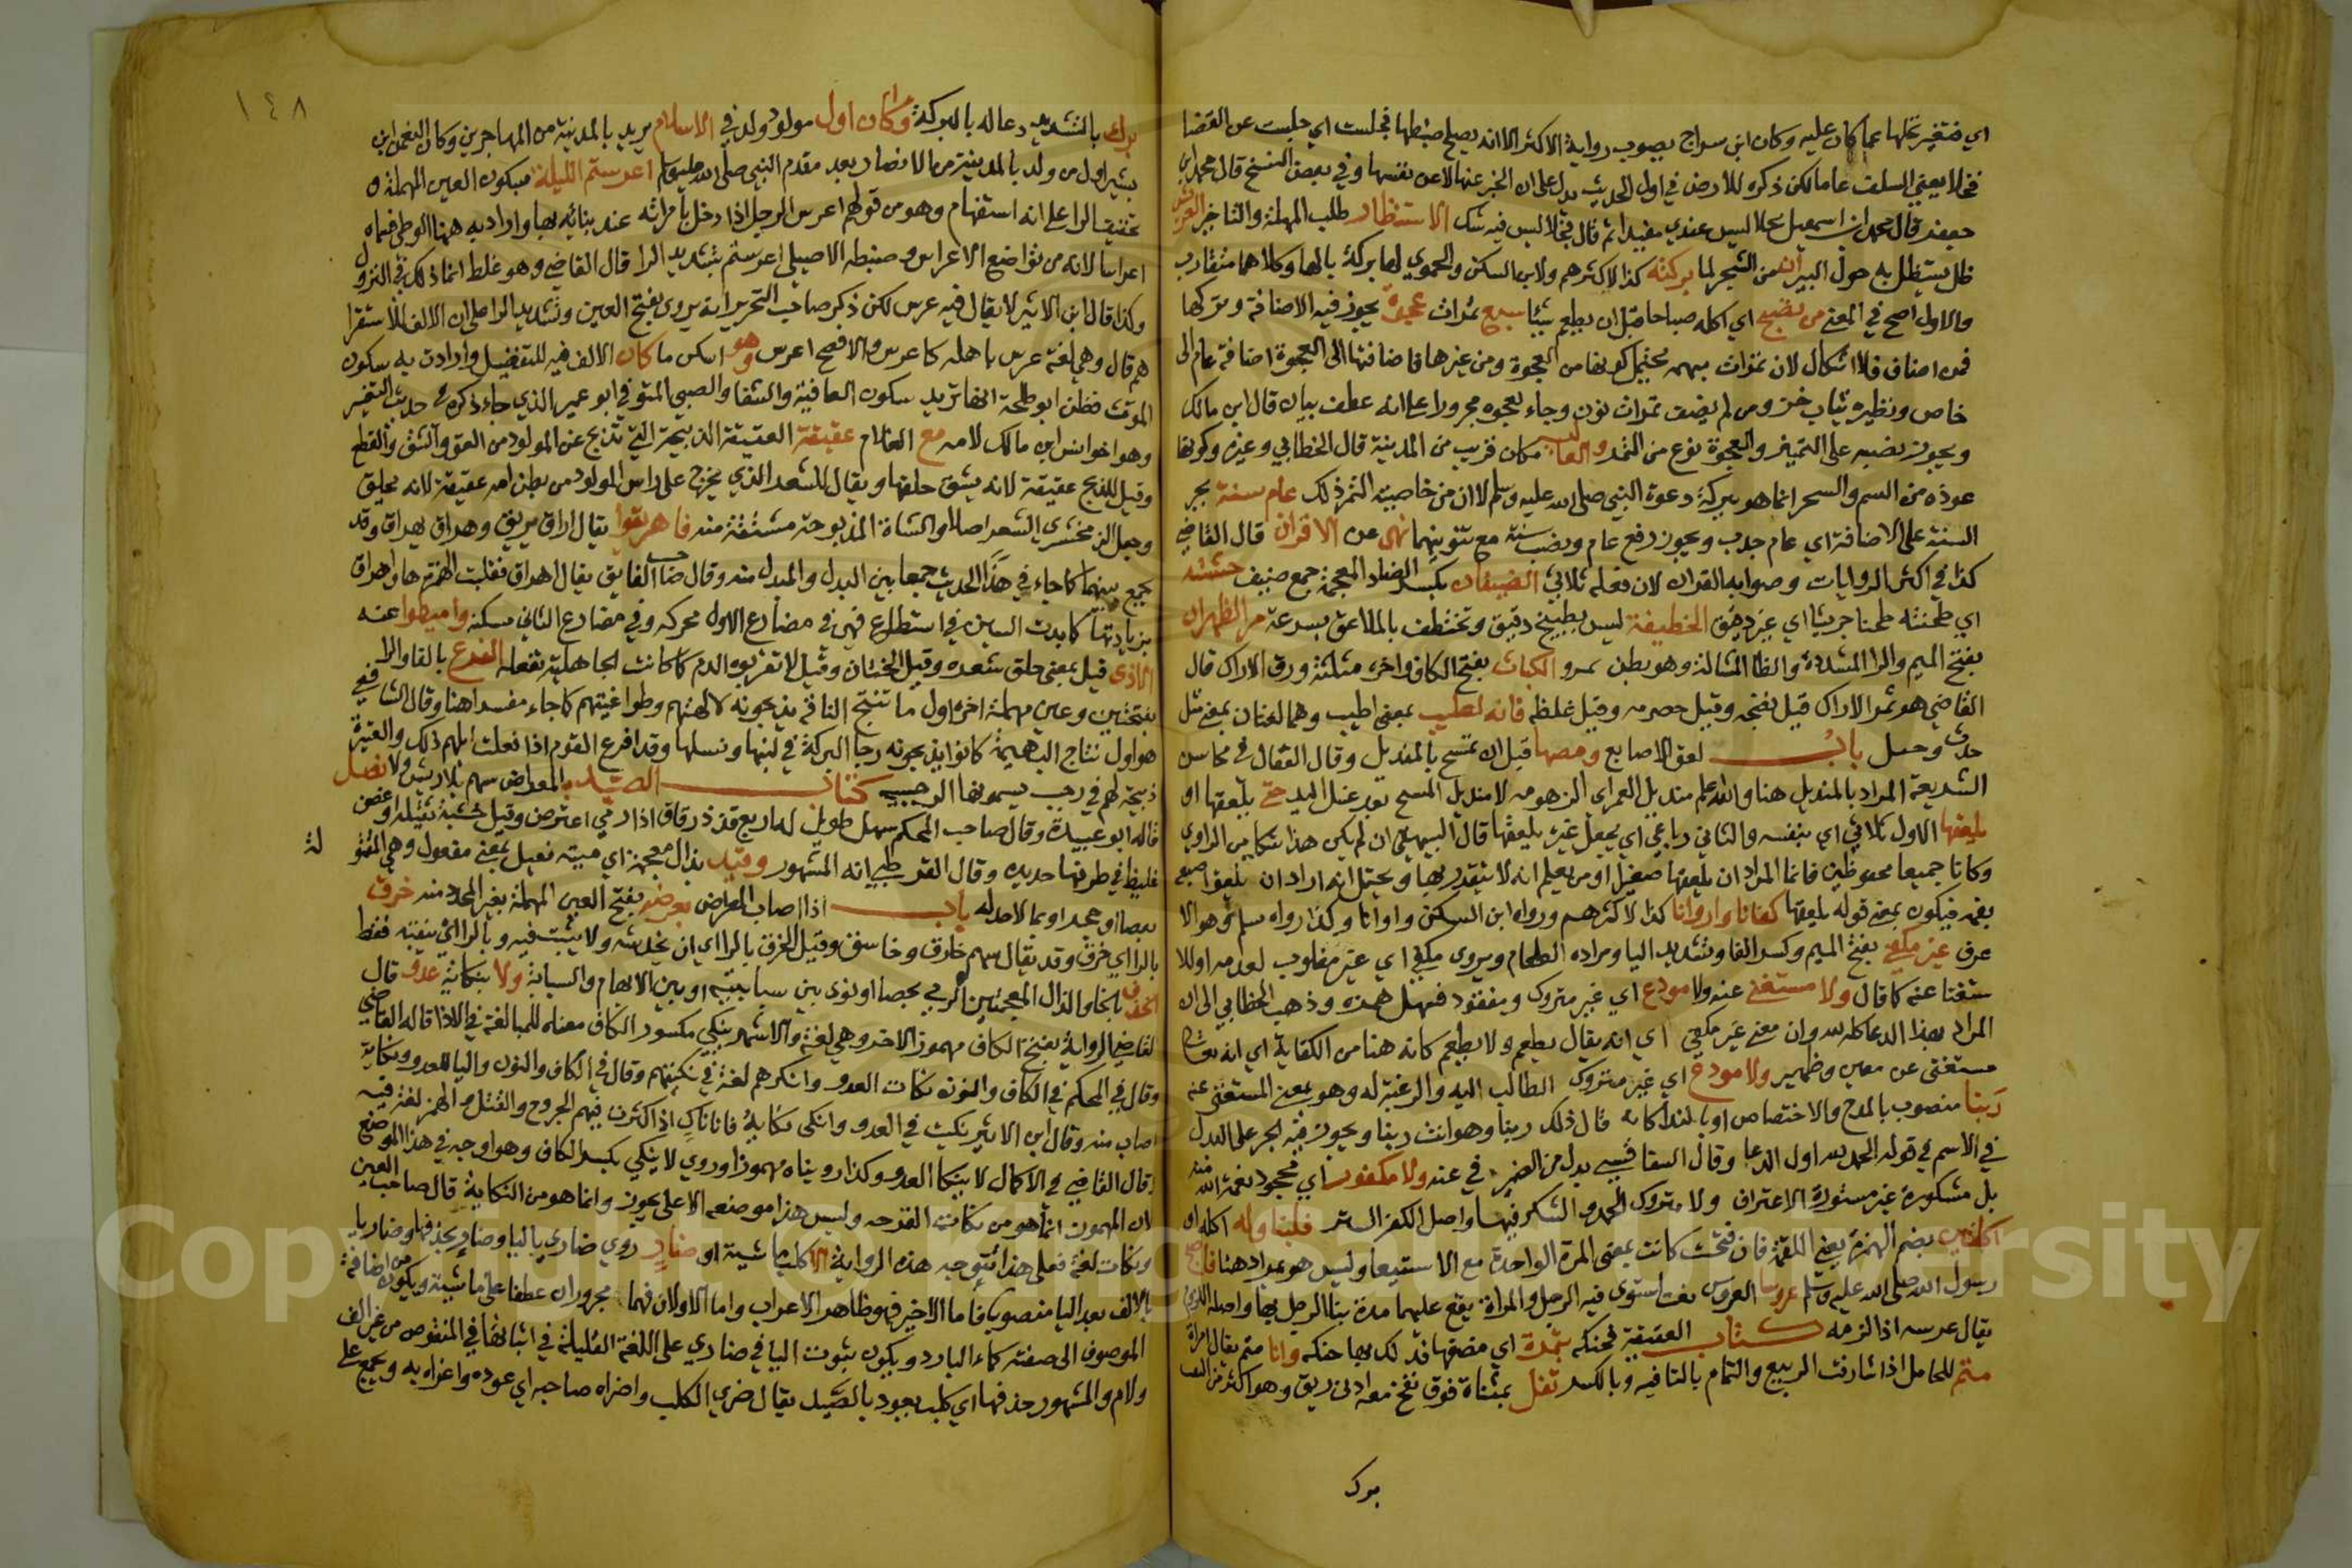 اي فتغير نخلها عما كان عليه وكان ابن سراج يصوب رواية الاكثر الا انه يصلح ضبطها فجلست اي جلست عن القضا
فخلا يعني السلف عاما لكن ذكره للارض في اول الحديث يدل على ان الخبر عنها لا عن نفسها وفي بعض النسخ قال محمد ابن
جعفر قال محمد ابن اسمعيل نخلا ليس عندي مقيدا ثم قال فخلا ليس فيه شك الاستنظار طلب المهلة والتاخير العرش
ظل يستظل به حول البير من الشجر لها بركته كذا لاكثرهم ولابن السكن والحموي لها بركة بالها وكلاهما متقارب
والاول اصح في المعنى من تصبح اي اكله صباحا قبل ان يطعم شيئا سبع تمرات عجوة يجوز فيه الاضافة وتركها
فمن اضاف فلا اشكال لان تمرات مبهمة يحتمل كونها من العجوة ومن غيرها فاضافتها الى العجوة اضافة عام الى
خاص ونظيره ثياب خز ومن لم يضف تمرات نون وجاء بعجوه مجرورا على انه عطف بيان قال ابن مالك
ويجوز نصبه على التميز والعجوة نوع من التمر والعالية مكان قريب من المدينة قال الخطابي وغيره وكونها
عوذه من السم والسحر انما هو ببركة دعوة النبي صلى الله عليه وسلم لا ان من خاصية الثمر ذلك عام سنة بجر
السنة على الاضافة اي عام جدب ويجوز رفع عام ونصب سنة مع تنوينهما نهى عن الاقران قال القاضي
كذا في اكثر الروايات وصوابه القران لان فعله ثلاثي الضيفان بكسر الضاد المعجمة جمع ضيف جششته
اي طحنته طحنا جريشا اي غير دقيق الخطيفة لبس يطبخ بدقيق وتختطف بالملاعق بسرعة مر الظهران
بفتح الميم والرا المشددة والظا المشالة وهو بطن مرو الكباث بفتح الكاف واخره مثلثة ورق الاراك قال
القاضي هو ثمر الاراك قيل نضجه وقيل حصرمه وقيل غليظه فانه لطيب بمعنى اطيب وهما لغتان بمعنى مثل
جذب وجبذ باب لعق الاصابع ومصها قبل ان تمسح بالمنديل وقال القفال في محاسن
الشريعة المراد بالمنديل هنا والله اعلم منديل الغمر اي الزهومه لا منديل المسح بعد غسل اليد حتى يلعقها او
يلعقها الاول ثلاثي اي بنفسه والثاني رباعي اي يجعل غيره يلعقها قال البيهقي ان لم يكن هذا شكا من الراوي
وكانا جميعا محفوظين فانما المراد ان يلعقها صغيرا او من يعلم انه لا يتقذر بها ويحتمل انه اراد ان يلعق اصبعه
بفمه فيكون بمعنى قوله يلعقها كفانا واروانا كذا لاكثرهم ورواه ابن السكن واوانا وكذا رواه مسلم وهو الا
عرف غير مكفي بفتح الميم وكسر الفا وتشديد اليا ومراده الطعام ويروى مكفى اي غير مقلوب لعدمه او للا
ستغنا عنه كما قال ولا مستغنى عنه ولا مودع اي غير متروك ومفقود فتسهل همزه وذهب الخطابي الى ان
المراد بهذا الدعا كله لله وان معنى غير مكفي اي انه يقال يطعم ولا يطعم كانه هنا من الكفاية اي انه تعالى
مستغنى عن معين وظهير ولا مودع اي غير متروك الطالب اليه والرغبة له وهو بمعنى المستغنى عنه
ربنا منصوب بالمدح والاختصاص او بالندا كانه قال ذلك ربنا وهو انت ربنا ويجوز فيه الجر على البدل
في الاسم في قوله الحمد لله اول الدعا وقال السفاقسي بدل من الضمير في عنه ولا مكفور اي مجحود نعمة الله منه
بل مشكورة غير مستورة الاعتراف ولا متروك الحمد والشكر فيها واصل الكفر الستر فليناوله اكله او
اكلتين بضم الهمزة يعني اللقمة فان فتحت كانت بمعنى المرة الواحدة مع الاستيعاب وليس هو بمراد هنا فاصبح
رسول الله صلى الله عليه وسلم عروسا العروس نعت استوى فيه الرجل والمراة يقع عليهما مدة بنا الرجل بها واصله اللزوم
يقال عرسه اذا لزمه كتاب العقيقة فحنكه بتمرة اي مضغها فدلك بها حنكه وانا متم يقال امراة
متم للحامل اذا شارفت الربيع والتمام بالتا فيه وبالكسر تفل بمثناة فوق نفخ معه ادنى ريق وهو اكثر من النفث
برك
١٤٨
برك بالتشديد دعا له بالبركة وكان اول مولود ولد في الاسلام يريد بالمدينة من المهاجرين وكان النعمن ابن
بشير اول من ولد بالمدينة من الانصار بعد مقدم النبي صلى الله عليه وسلم اعرستم الليلة بسكون العين المهملة و
تخفيف الرا على انه استفهام وهو من قولهم اعرس الرجل اذا دخل بامراته عند بنائه بها واراد به ههنا الوطئ فسماه
اعراسا لانه من توابع الاعراس وضبطه الاصيلي اعرستم بتشديد الرا قال القاضي وهو غلط انما ذلك في النزول
وكذا قال ابن الاثير لا يقال فيه عرس لكن ذكر صاحب التحرير انه يروى بفتح العين وتشديد الرا على ان الالف للاستفها
م قال وهي لغة عرس باهله كاعرس والافصح اعرس وهو اسكن ما كان الالف فيه للتفضيل وارادت به سكون
الموت فظن ابو طلحة انها تريد سكون العافية والشفا والصبي المتوفى ابو عمير الذي جاء ذكره في حديث النغير
وهو اخو انس ابن مالك لامه مع الغلام عقيقة العقيقة الذبيحة التي تذبح عن المولود من العق والشق والقطع
وقيل للذبح عقيقة لانه يشق حلقها ويقال للشعر الذي يخرج على راس المولود من بطن امه عقيقة لانه يحلق
وجعل الزمخشري الشعر اصلا والشاة المذبوحة مشتقة منه فاهريقوا يقال اراق يريق وهراق يهراق وقد
يجمع بينهما كما جاء في هذا الحديث جمعا بين البدل والمبدل منه وقال صاحب الفايق يقال اهراق فقلبت الهمزة ها واهراق
بزيادتها كما زيدت السين في استطاع فهي في مضارع الاول محركه وفي مضارع الثاني مسكنه واميطوا عنه
الاذى قيل بمعنى حلق شعره وقيل الختان وقيل لا تقربوه الدم كما كانت الجاهلية تفعله الفرع بالفا والرا
بفتحتين وعين مهملة اخره اول ما تنتج الناقة يذبحونه لالهتهم وطواغيتهم كما جاء مفسرا هنا وقال الشافعي
هو اول نتاج البهيمة كانوا يذبحونه رجا البركة في لبنها ونسلها وقد افرع القوم اذا فعلت ابلهم ذلك والعتيرة
ذبيحة لهم في رجب يسمونها الرجبية كتاب الصيد المعراض سهم بلا ريش ولا نصل
قاله ابو عبيدة وقال صاحب المحكم سهم طويل له اربع قذذ رقاق اذا رمي اعترض وقيل خشبة ثقيلة او عصى
غليظ في طرفها حديده وقال القرطبي انه المشهور وقيذ بذال معجمة اي ميتة فعيل بمعنى مفعول وهي المقتو
لة
بعصا او بحجر او بما لا حد له باب اذا اصاب المعراض بعرضه بفتح العين المهملة بغير المحدد منه خرق
بالزا اي خرق وقد يقال سهم خازق وخاسق وقيل الخرق بالرا اي ان يخدشه ولا يثبت فيه وبالزا اي يثقبه فقط
الخذف بالخا والذال المعجمتين الرمي بحصا او نوى بين سبابتيه او بين الابهام والسبابة ولا ينكا به عدو قال
القاضي الرواية بفتح الكاف مهموز الاخر وهي لغة والاشهر ينكي مكسور الكاف معناه للمبالغة في الاذا قاله القاضي
وقال في المحكم في الكاف والنون نكات العدو وانكرهم لغة في نكيتهم وقال في الكاف والنون واليا للعدو ونكاية
اصاب منه وقال ابن الاثير نكيت في العدو وانكي نكاية فانا ناك اذ اكثرت فيهم الجروح والقتل والهمز لغة فيه
وقال القاضي في الاكمال لا ينكا العدو وكذا رويناه مهموزا وروي لا ينكي بكسر الكاف وهو اوجه في هذا الموضع
لان المهموز انما هو من نكات القرحه وليس هذا موضعه الا على تجوز وانما هو من النكاية قال صاحب العين
ونكات لغة فعلى هذا تتوجه هذه الرواية الا كلب ماشية او ضار روي ضاري باليا وضار بحذفها وضاريا
بالالف بعد اليا منصوبا فاما الاخير فهو ظاهر الاعراب واما الاولان فهما مجروران عطفا على ماشية ويكون من اضافة
الموصوف الى صفته كماء البارد ويكون ثبوت اليا في ضاري على اللغة القليلة في اثباتها في المنقوص من غير الف
ولام والمشهور حذفها اي كلب يعود بالصيد يقال ضري الكلب واضراه صاحبه اي عوده واغراه به ويجمع على
Copyright © King Saud University